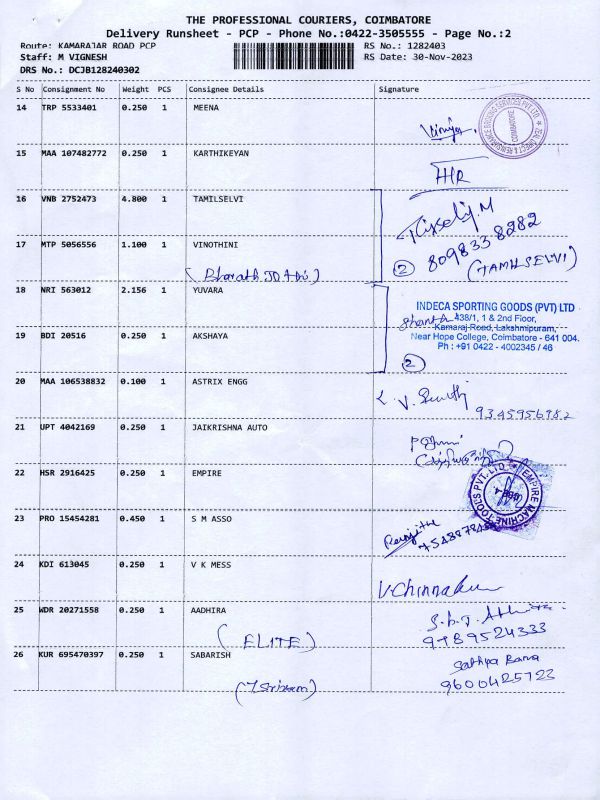 THE PROFESSIONAL COURIERS, COIMBATORE
Delivery Runsheet - PCP - Phone No.:0422-3505555 - Page No.:2
Route: KAMARAJAR ROAD PCP RS No.: 1282403
Staff: M VIGNESH RS Date: 30-Nov-2023
DRS No.: DCJB128240302
S No Consignment No Weight PCS Consignee Details Signature
14 TRP 5533401 0.250 1 MEENA
COIMBATORE
15 MAA 107482772 0.250 1 KARTHIKEYAN
HR
16 VNB 2752473 4.800 1 TAMILSELVI
8098338282
17 MTP 5056556 1.100 1 VINOTHINI
2 (TAMILSELVI)
18 NRI 563012 2.156 1 YUVARA
INDECA SPORTING GOODS (PVT) LTD
438/1, 1 & 2nd Floor,
Kamaraj Road, Lakshmipuram,
Near Hope College, Coimbatore - 641 004.
Ph : +91 0422 - 4002345 / 46
19 BDI 20516 0.250 1 AKSHAYA
2
20 MAA 106538832 0.100 1 ASTRIX ENGG
9345956982
21 UPT 4042169 0.250 1 JAIKRISHNA AUTO
22 HSR 2916425 0.250 1 EMPIRE
EMPIRE MACHINE TOOLS PVT. LTD
23 PRO 15454281 0.450 1 S M ASSO
24 KDI 613045 0.250 1 V K MESS
25 WDR 20271558 0.250 1 AADHIRA
(ELITE)
9789524333
26 KUR 695470397 0.250 1 SABARISH
Sathya Bama
9600425723